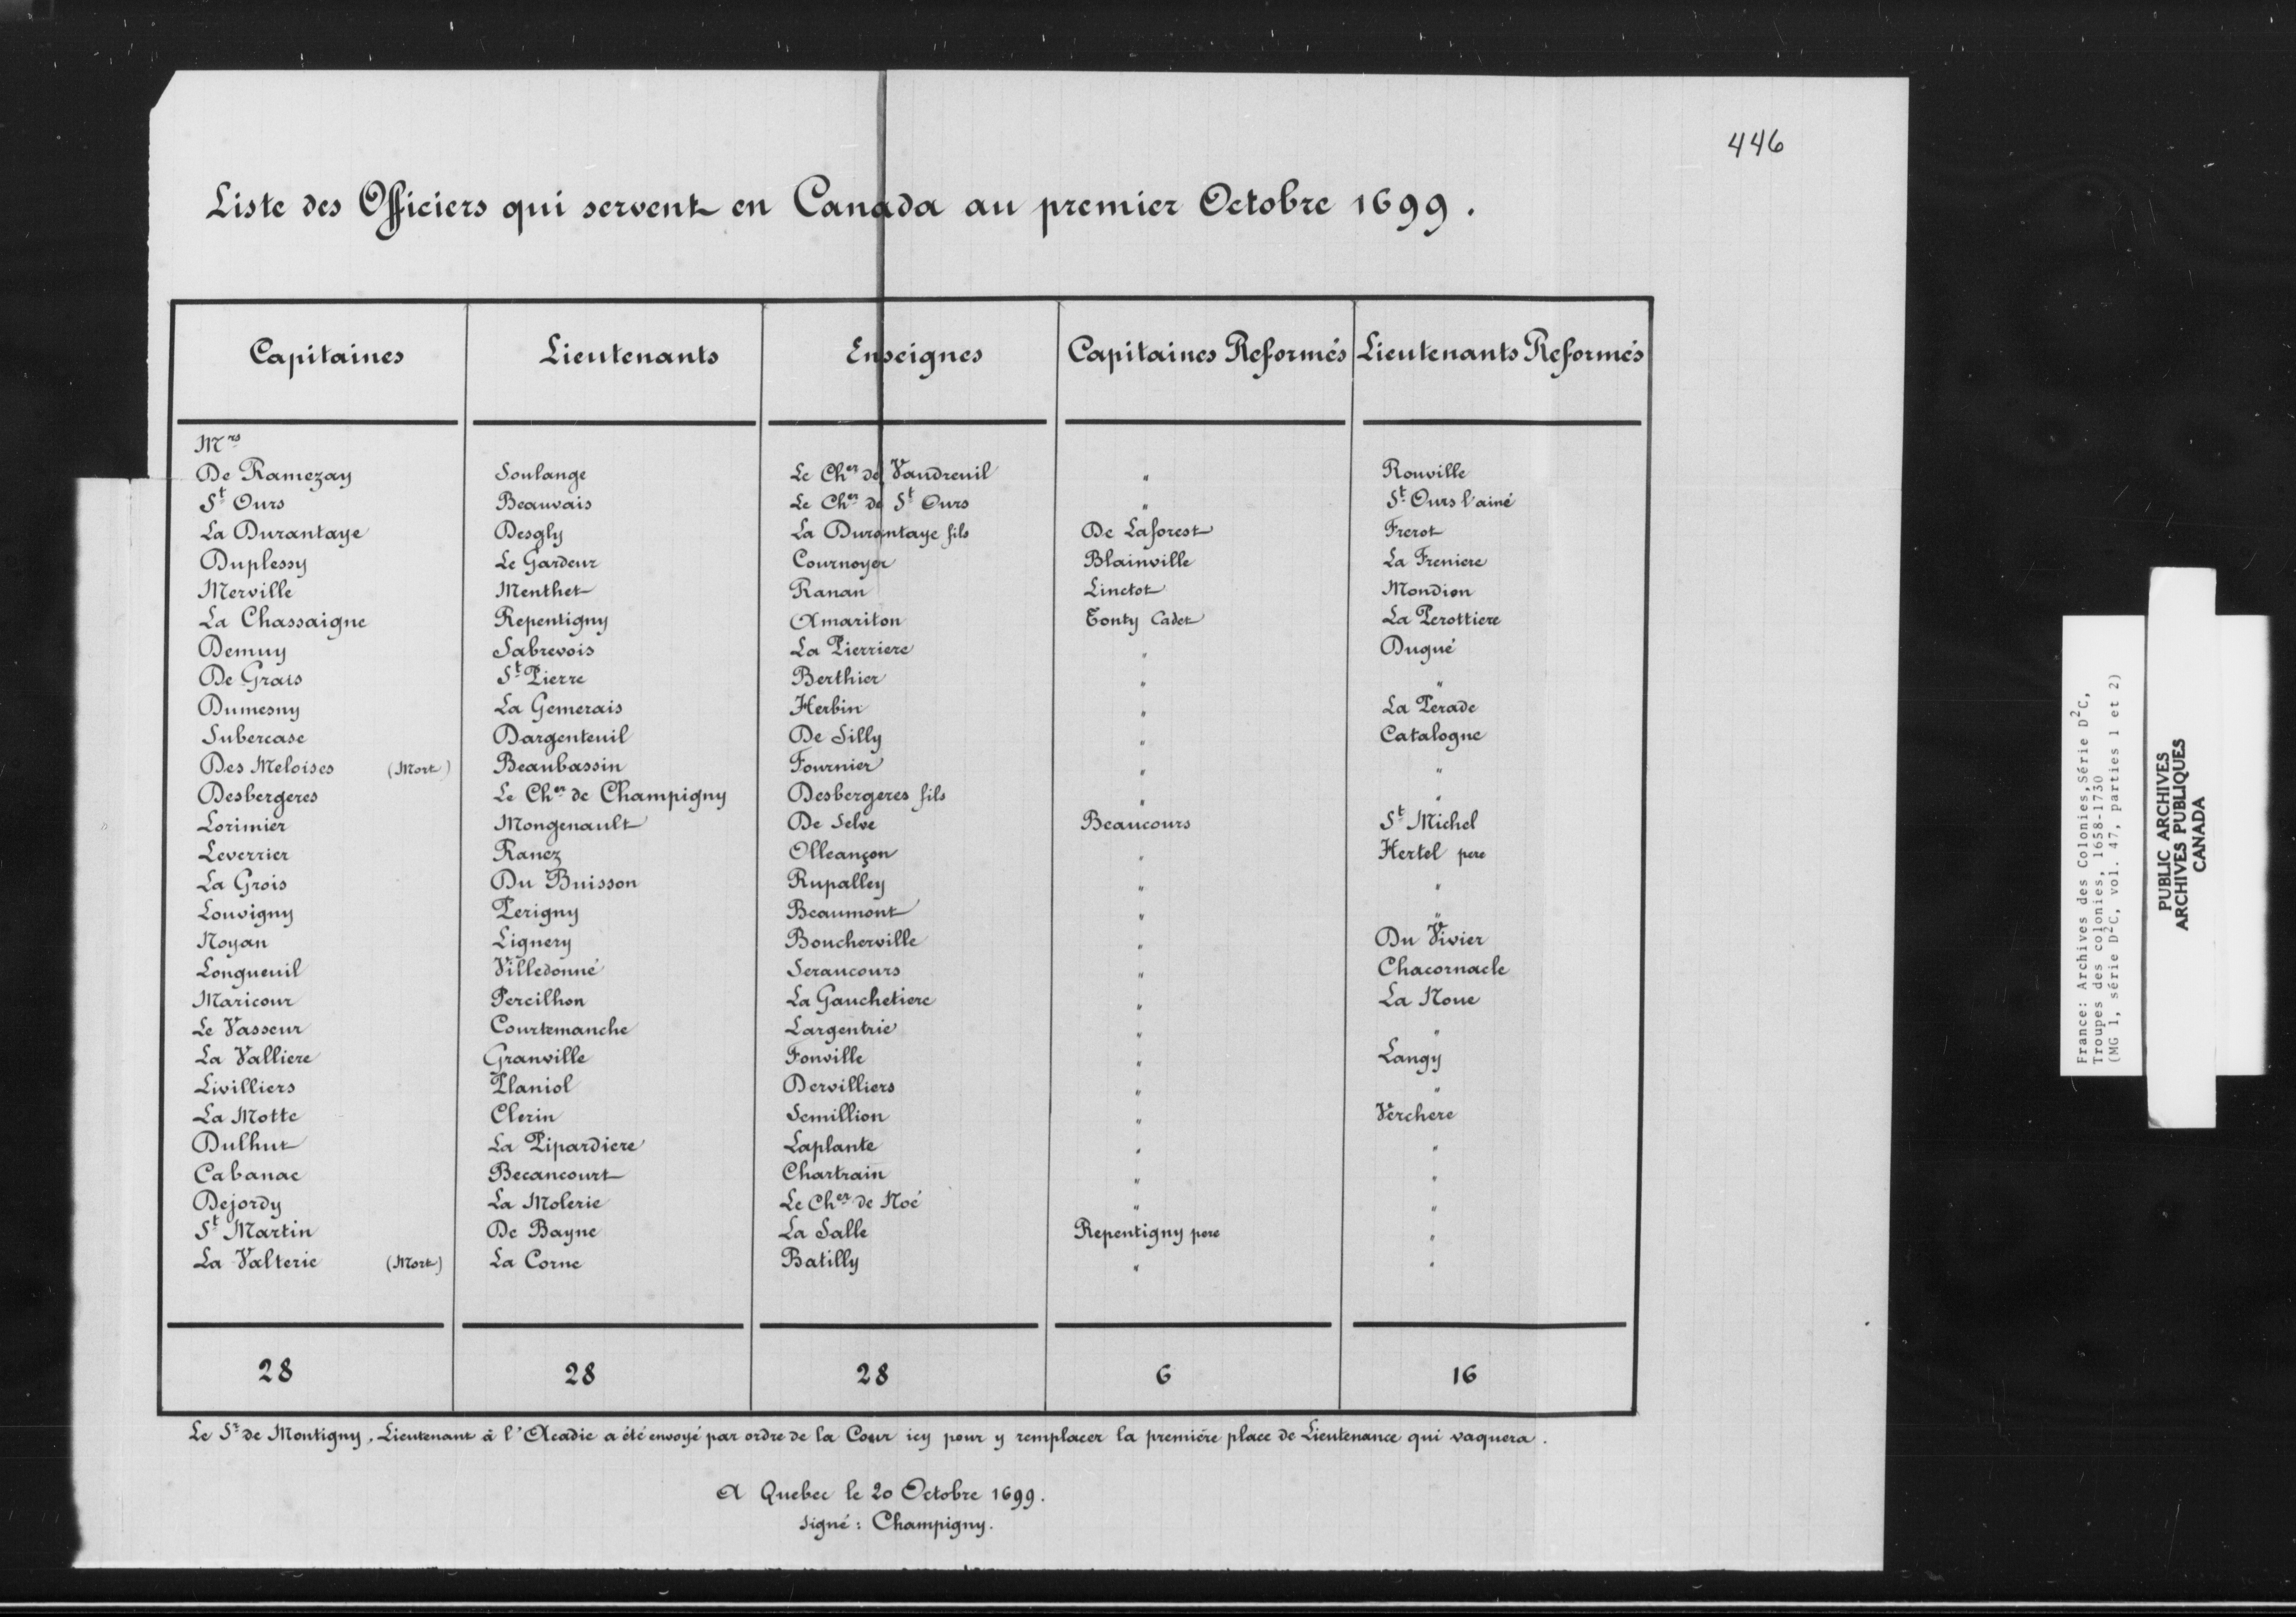 446
Liste des Officiers qui servent en Canada au premier Octobre 1699.
Capitaines Lieutenants Enseignes Capitaines Reformés Lieutenants Reformés
Mrs
De Ramezay Soulange Le Cher de Vaudreuil " Rouville
St Ours Beauvais Le Cher de St Ours " St Ours l'ainé
La Durantaye Desgly La Durantaye fils De Laforest Frerot
Duplessy Le Gardeur Cournoyer Blainville La Freniere
Merville Menthet Ranan Linctot Mondion
La Chassaigne Repentigny Amariton Tonty Cadet La Perottiere
Demuy Sabrevois La Pierriere " Dugué
De Grais St Pierre Berthier " "
Dumesny La Gemerais Herbin " La Perade
Subercase Dargenteuil De Silly " Catalogne
Des Meloises (Mort) Beaubassin Fournier " "
Desbergeres Le Cher de Champigny Desbergeres fils " "
Lorimier Mongenault De Selve Beaucours St Michel
Leverrier Ranez Olleançon " Hertel pere
La Grois Du Buisson Rupalley " "
Louvigny Perigny Beaumont " "
Noyan Lignery Boucherville " Du Vivier
Longueuil Villedonné Seraucours " Chacornacle
Maricour Percilhon La Gauchetiere " La Noue
Le Vasseur Courtemanche Largentrie " "
La Valliere Granville Fonville " Langy
Livilliers Planiol Dervilliers " "
La Motte Clerin Semillion " Verchere
Dulhut La Pipardiere Laplante " "
Cabanac Becancourt Chartrain " "
Dejordy La Molerie Le Cher de Noé " "
St Martin De Bayne La Salle Repentigny pere "
La Valterie (Mort) La Corne Batilly " "
28 28 28 6 16
Le Sr de Montigny, Lieutenant à l'Acadie a été envoyé par ordre de la Cour icy pour y remplacer la première place de Lieutenance qui vaquera.
A Quebec le 20 Octobre 1699.
signé: Champigny.
France: Archives des Colonies, Série D2C,
Troupes des colonies, 1658-1730
(MG 1, série D2C, vol. 47, parties 1 et 2)
PUBLIC ARCHIVES
ARCHIVES PUBLIQUES
CANADA